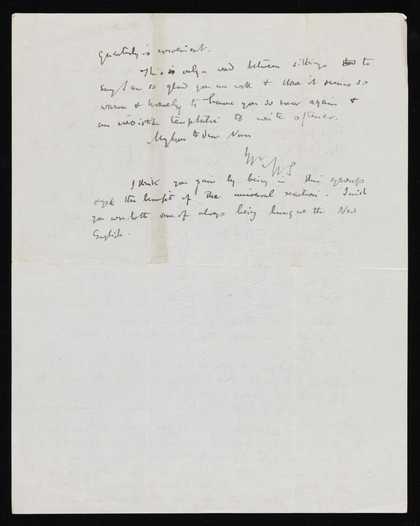 Quarterly is excellent.
This is only a word between sittings to
say I am so glad you are well & that it seems so
warm & homely to have you so near again &
an irresistible temptation to write oftener.
My love to dear Nan
Yrs W S
I think you gain by being in this
the benefit of the universal reaction. I wish
you were both sure of always being hung at the New
English.